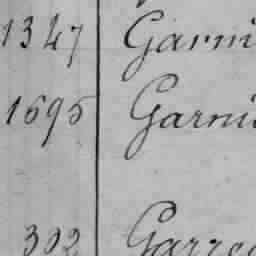 1347 Garni
1695 Garni
302 Garre